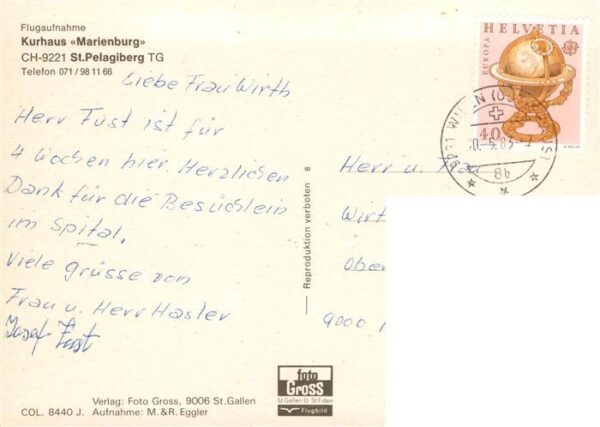 Flugaufnahme
Kurhaus «Marienburg»
CH-9221 St.Pelagiberg TG
Telefon 071 / 98 11 66
Liebe Frau Wirth
Herr Fust ist für
4 Wochen hier. Herzlichen
Dank für die Besüchlein
im Spital.
Viele grüsse von
Frau u. Herr Hasler
Josef Fust
Reproduktion verboten 8
HELVETIA
EUROPA
40
9231
8b
Herr u. Frau
Wirt
Ober
9000
foto
GROSS
St.Gallen O St.Fiden
Flugbild
Verlag: Foto Gross, 9006 St.Gallen
COL. 8440 J. Aufnahme: M.&R. Eggler